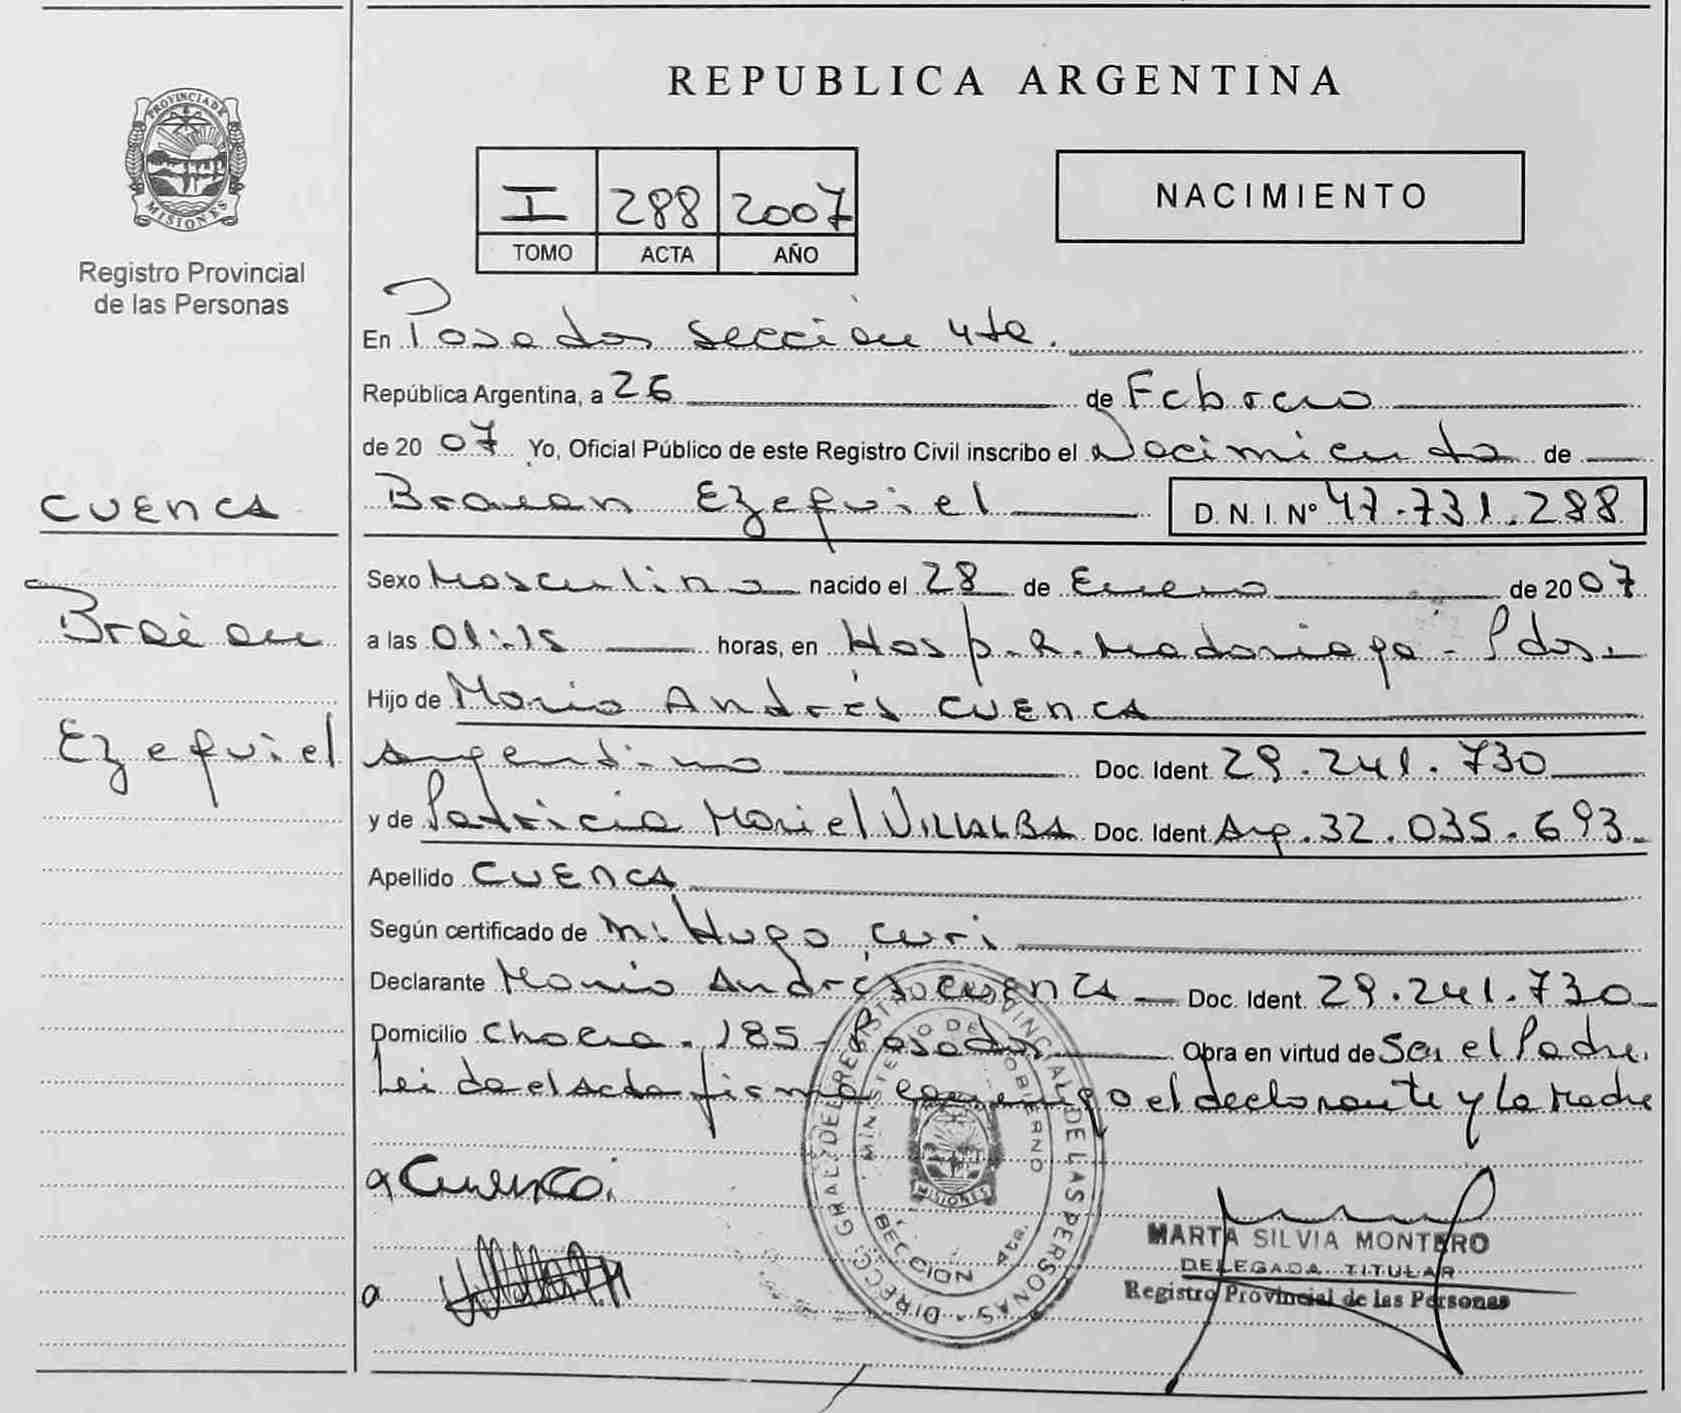 REPUBLICA ARGENTINA
PROVINCIA DE
MISIONES
Registro Provincial
de las Personas
I 288 2007
TOMO ACTA AÑO
NACIMIENTO
En Posadas sección 4ta.
República Argentina, a 26 de Febrero
de 2007 Yo, Oficial Público de este Registro Civil inscribo el Nacimiento de
CUENCA
Braian Ezequiel D. N. I. Nº 47.731.288
Sexo Masculino nacido el 28 de Enero de 2007
Braian
a las 01:15 horas, en Hosp. R. Madariaga - Pdas.
Hijo de Mario Andrés CUENCA
Ezequiel
argentino Doc. Ident. 29.241.730
y de Patricia Mariel VILLALBA Doc. Ident. Arg. 32.035.693
Apellido CUENCA
Según certificado de M. Hugo Curi
Declarante Mario Andrés CUENCA Doc. Ident. 29.241.730
Domicilio Chacra. 185 - Posadas Obra en virtud de Ser el Padre.
Leida el Acta firma conmigo el declarante y La Madre
DIRECC. GRAL. DEL REGISTRO PROVINCIAL DE LAS PERSONAS
MINISTERIO DE GOBIERNO
MISIONES
SECCION 4ta.
Cuenca
MARTA SILVIA MONTERO
DELEGADA TITULAR
Registro Provincial de las Personas